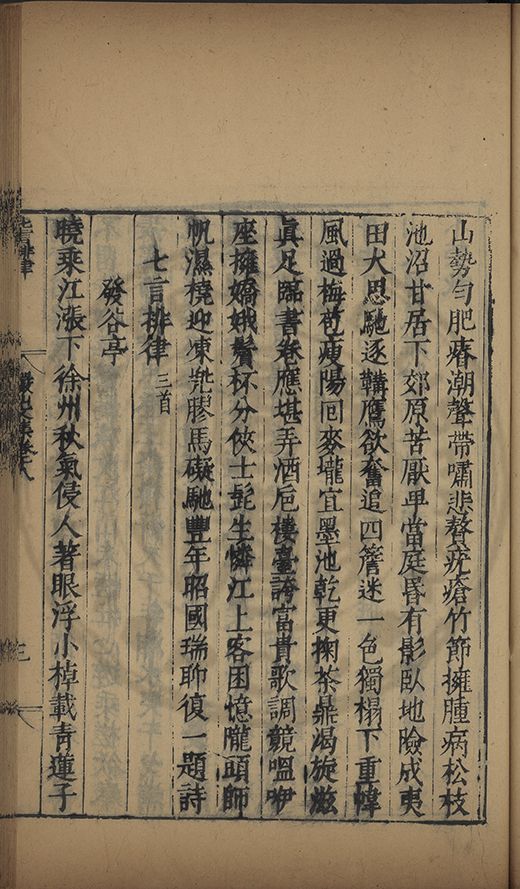 山勢勻肥瘠潮聲帶嘯悲贅疣瘡竹節擁腫病松枝
池沼甘居下郊原苦厭卑當庭昏有影臥地險成夷
田犬思馳逐鞲鷹欲奮追四簷迷一色獨榻下重幃
風過梅苞瘦陽回麥壠宜墨池乾更掬茶鼎渴旋滋
眞足臨書卷應堪弄酒巵樓臺誇富貴歌調競嗢咿
座擁嬌娥鬢杯分俠士髭生憐江上客困憶隴頭師
帆濕橈迎凍膠馬礙馳豐年昭國瑞聊復一題詩
七言排律 三首
發谷亭
曉乘江漲下徐州秋氣侵人著眼浮小棹載青蓮子